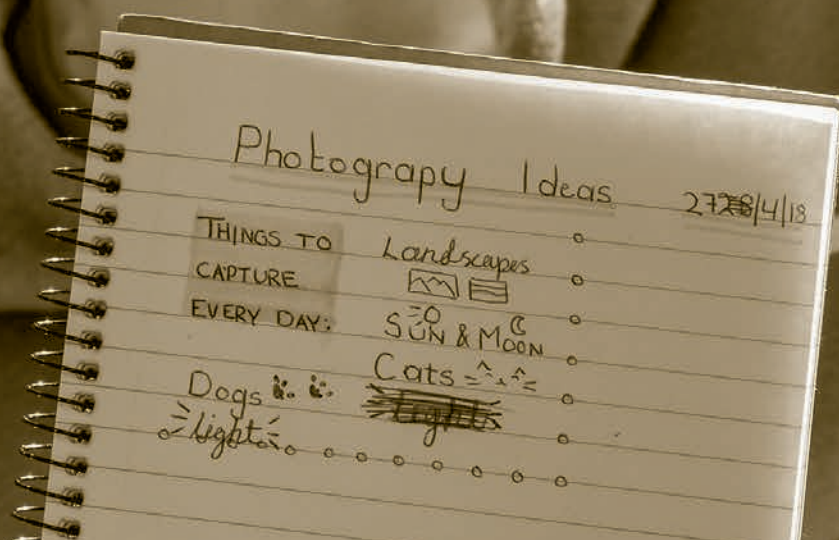 Photograpy Ideas
27/4/18
THINGS TO
CAPTURE
EVERY DAY:
Landscapes
SUN & MOON
Cats
Dogs
light